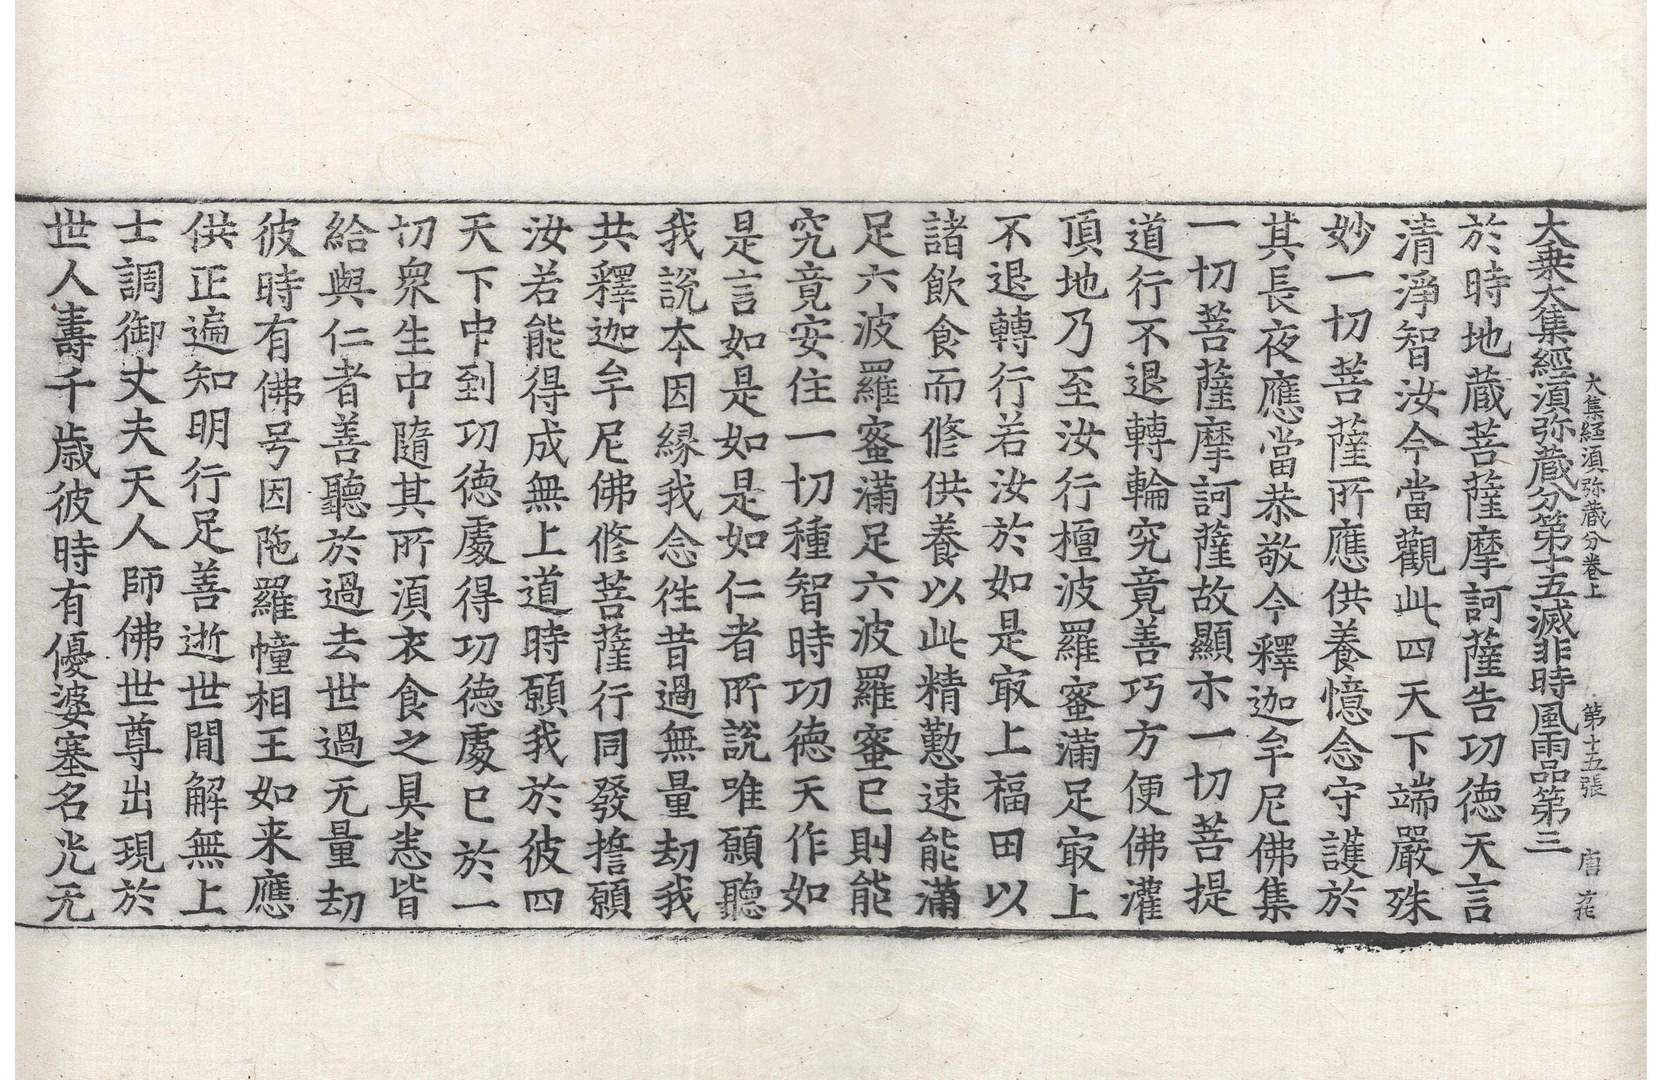 大集経湏弥蔵分卷上　第十五張　唐　花
大乗大集經湏弥蔵分第十五滅非時風雨品第三
於時地蔵菩薩摩訶薩告功徳天言
清淨智汝今當觀此四天下端嚴殊
妙一切菩薩所應供養憶念守護於
其長夜應當恭敬今釋迦牟尼佛集
一切菩薩摩訶薩故顯示一切菩提
道行不退轉輪究竟善巧方便佛灌
頂地乃至汝行檀波羅蜜滿足㝡上
不退轉行若汝於如是㝡上福田以
諸飲食而修供養以此精懃速能滿
足六波羅蜜滿足六波羅蜜已則能
究竟安住一切種智時功徳天作如
是言如是如是如仁者所說唯願聽
我說本因縁我念往昔過無量劫我
共釋迦牟尼佛修菩薩行同發擔願
汝若能得成無上道時願我於彼四
天下中到功徳處得功徳處已於一
切衆生中隨其所湏衣食之具悉皆
給與仁者善聽於過去世過无量劫
彼時有佛号因陁羅幢相王如来應
供正遍知明行足善逝世間解無上
士調御丈夫天人師佛世尊出現於
世人壽千歳彼時有優婆塞名光无